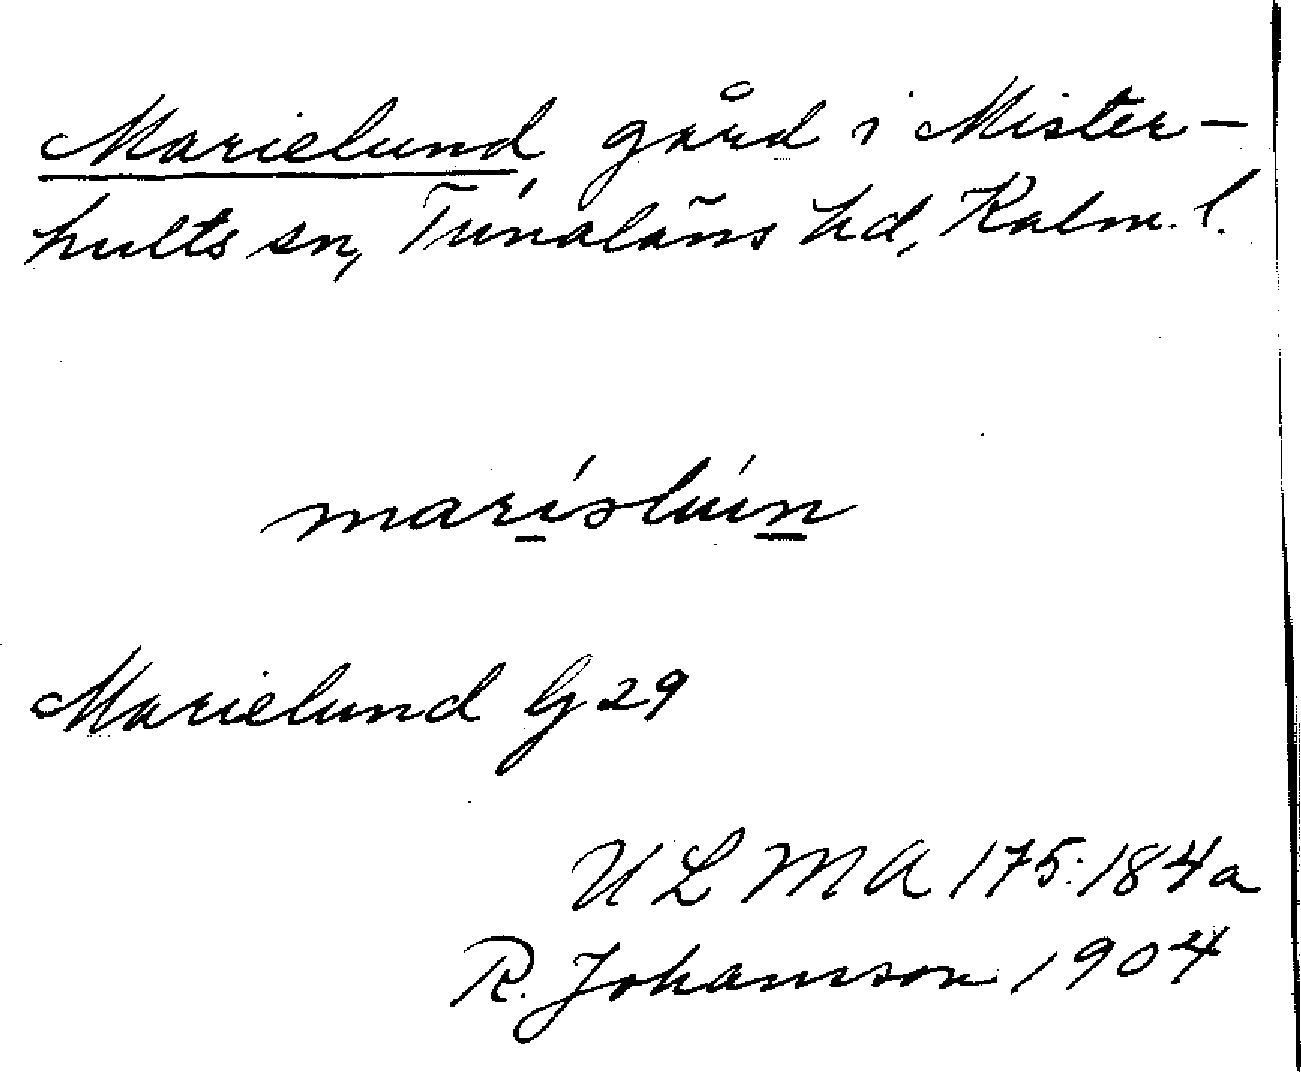 Marielund gård i Mister-
hults sn, Tunaläns hd, Kalm. l.
marislun
Marielund G 29
ULMA 175:184a
R. Johansson 1904